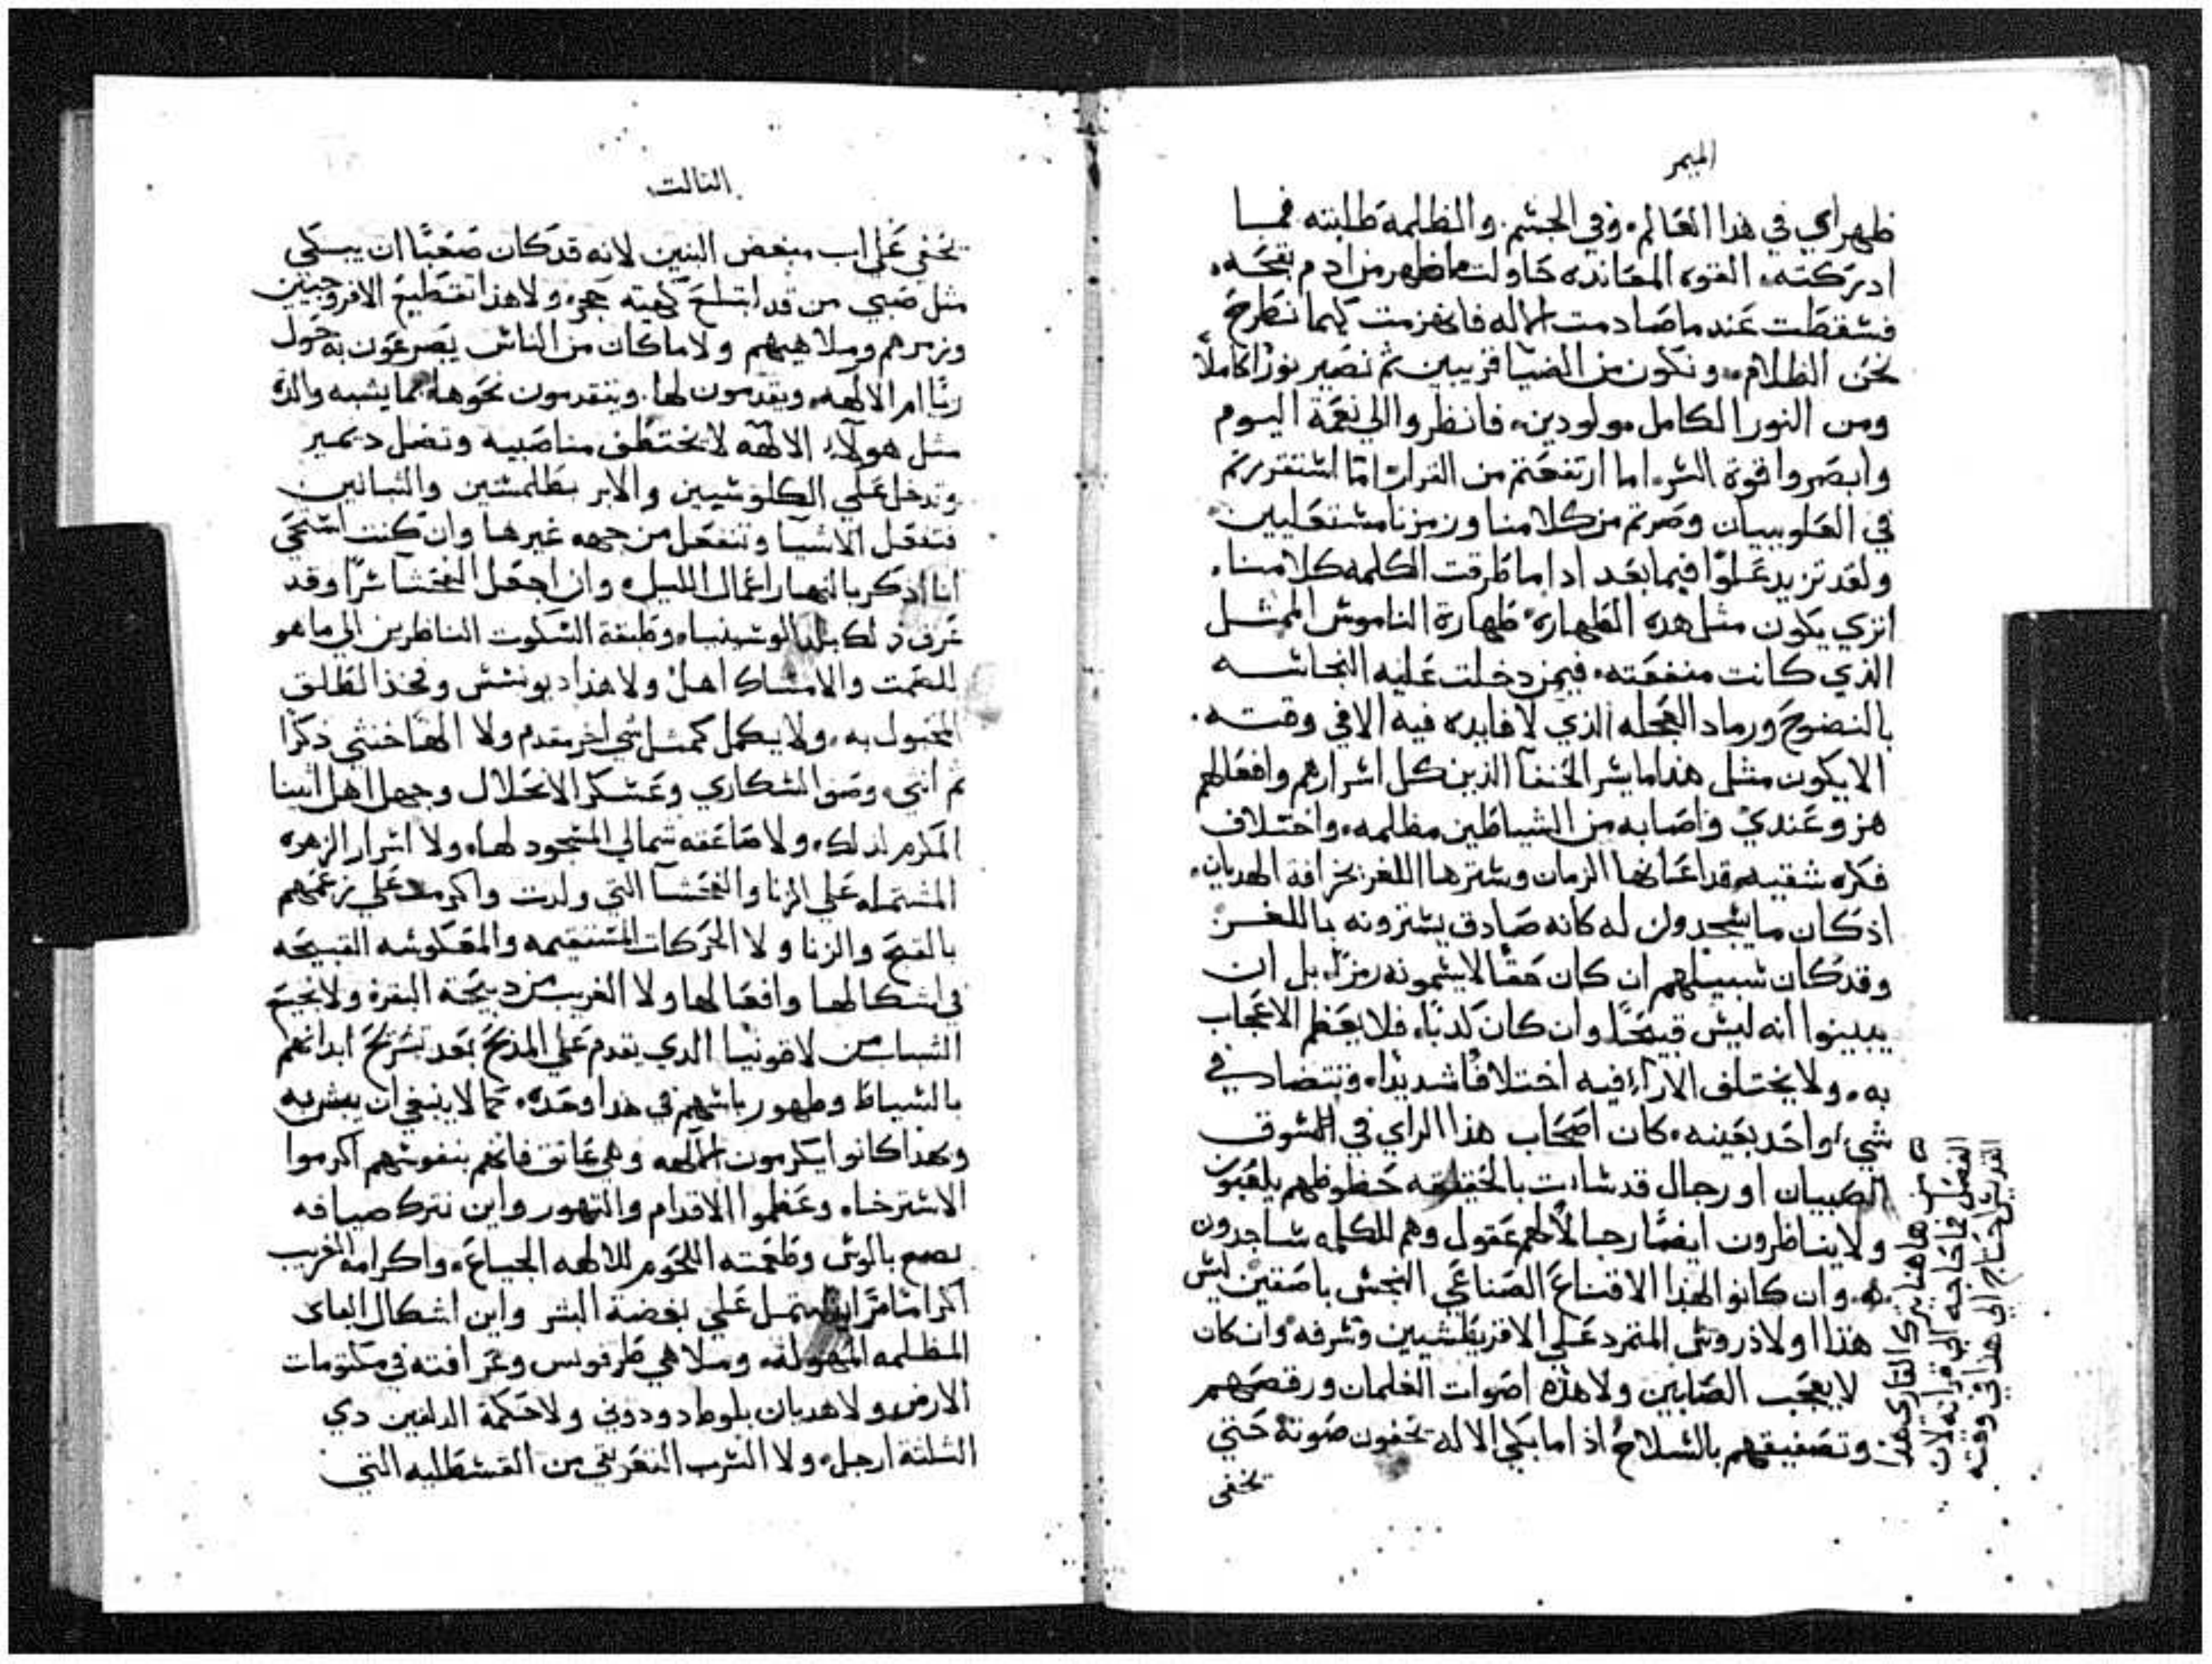 الميمر
ظهر اي في هذا العالم، وفي الجسم. والظلمة طلبته فما
ادركته، القوه المعانده حاولت ما ظهر من ادم بقحه،
فسقطت عند ما صادمت الاله فانهزمت كيما نطرح
نحن الظلام، ونكون من الضيا قريبين ثم نصير نورًا كاملًا
ومن النور الكامل مولودين، فانظروا الي نعمة اليوم
وابصروا قوة السر، اما ارتفعتم من التراب اما استقررتم
في العلويبان وصرتم من كلامنا ورمزنا مستعليين
ولقد تزيد علوًا فيما بعد اداما طرقت الكلمه كلامنا.
اتري يكون مثل هده الطهاره، طهارة الناموس الممثل
الذي كانت منفعته، فيمن دخلت عليه النجاسه
بالنضوح ورماد العجله الذي لا فايده فيه الا في وقته.
الا يكون مثل هذا ما يسر الحنفآ الذين كل اسرارهم وافعالهم
هزو عندي واصابه من الشياطين مظلمه، واختلاف
فكره شقيه قد اعانها الزمان وسترها اللغز بخرافة الهديان،
اذ كان ما يسجدون له كانه صادق يسترونه باللغز
وقد كان سبيلهم ان كان حقًا لا يسمونه رمزًا، بل ان
يبينوا انه ليس قبيحًا وان كان كدبًا، فلا يعظم الاعجاب
به، ولا يختلف الارآء فيه اختلافًا شديدًا، وتتضاد في
شيء واحد بعينه، كان اصحاب هذا الراي في السوق
الصبيان او رجال قد سات بالحقيقه حظوظهم يلعبون
ولا يناظرون ايضًا رجالًا لهم عقول وهم للكلمه ساجدون
وان كانوا لهذا الاقناع الصناعي النجس باصقين ليس
هذا اولاد روس المتمرد علي الاقريطشيين وشرفه وان كان
لا يعجب الصابين ولا هذه اصوات الغلمان ورقصهم
وتصفيقهم بالسلاح اذ اما بكي الاله يخفون صوته حتي
تخفي
من هاهنا يترك القاري هذا
الفصل فما حاجه الي قراته لان
القديس احتاج الي هذا في وقته
الثالت
تخفي علي اب مبغض البنين لانه قد كان صعبًا ان يبكي
مثل صبي من قد ابتلع كهيته حجر، ولا هذا تقطيع الافروجيين
وزمرهم وملاهيهم ولا ما كان من الناس يصرعون به حول
ريًا ام الالهه، ويقدمون لها. ويتقدمون نحوها بما يشبه والدة
مثل هولآء الالهه لا يختطف مناصبيه وتضل ديمير
وتدخل علي الكلوسيين والابر بطلمسين والتبانين
فتفعل الاشيا وتنفعل من جهه غيرها وان كنت استحي
انا اذكر بالنهار اعمال الليل، وان اجعل الفحشآ سرًا وقد
عرف دلك بلد الوسينيا، وطبقة السكوت الناظرين الي ما هو
للصمت والامساك اهل ولا هذا ديونسس وفخذ الطلق
المحبول به، ولا يكمل كمثل شي اخر مقدم ولا الهًا خنثي ذكرًا
ثم انثي، وصف السكاري وعسكر الانحلال وجهل اهل اثينا
المكرم لدلك، ولا صاعقه شمالي المسجود لها، ولا اسرار الزهره
المشتمله علي الزنا والفحشآ التي ولدت واكرمت علي زعمهم
بالقبح والزنا ولا الحركات المستقيمه والمعكوسه القبيحه
في اشكالها وافعالها ولا الغريب من دبيحة البقرة ولا نجيع
الشباب من لاقونيا الدي يقدم علي المذبح بعد تشريح ابدانهم
بالسياط وظهور باسهم في هدا وحده، مما لا ينبغي ان يسر به
وبهدا كانوا يكرمون الالهه وهي عاتق فانهم بنفوسهم اكرموا
الاسترخاء وعظموا الاقدام والتهور واين نترك ضيافه
وطعمته اللحوم للالهه الجياع، واكرامه الغريب
اكرامًا مرًا يشتمل علي بغضة البشر واين اشكال
المظلمه المهوله، وملاهي طرفونس وعرافته في مكتومات
الارض ولا هديان بلوطه دودوني ولا حكمة الدلفين دي
الثلثة ارجل، ولا الشرب من القسطليه التي